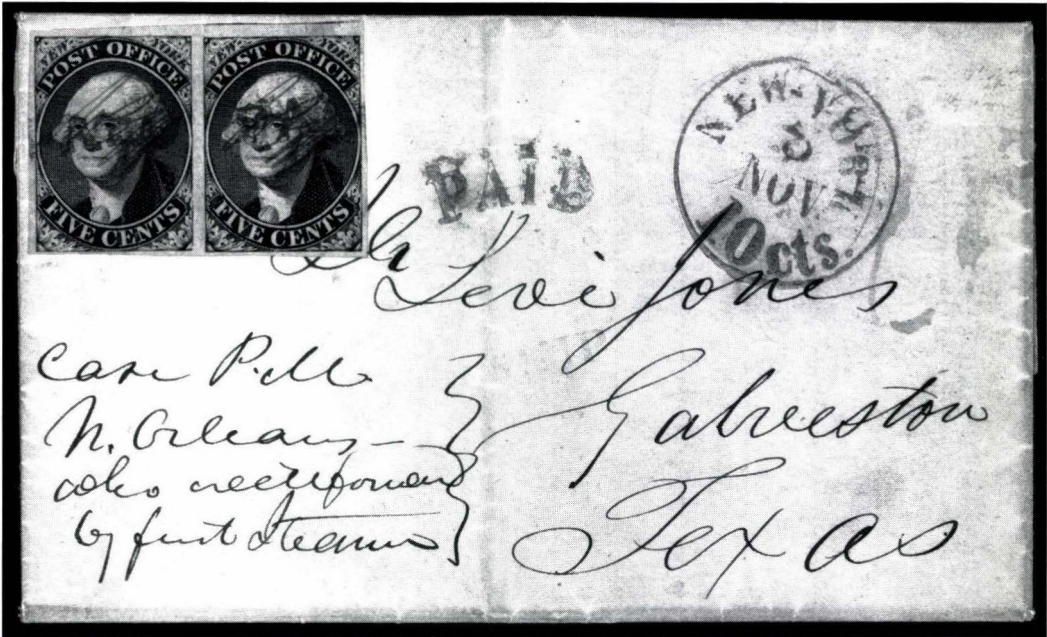 NEW YORK
POST OFFICE
FIVE CENTS
NEW YORK
POST OFFICE
FIVE CENTS
PAID
NEW-YORK
5
NOV
10cts.
Dr Levi Jones
Galveston
Texas
Care P.M.
N. Orleans
who will forward
by first steamer